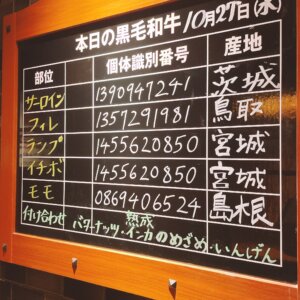 本日の黒毛和牛 10月27日(水)
部位 個体識別番号 産地
サーロイン 1390947241 茨城
フィレ 1357291981 鳥取
ランプ 1455620850 宮城
イチボ 1455620850 宮城
モモ 0869406524 島根
付け合わせ 熟成
バターナッツ・インカのめざめ・いんげん